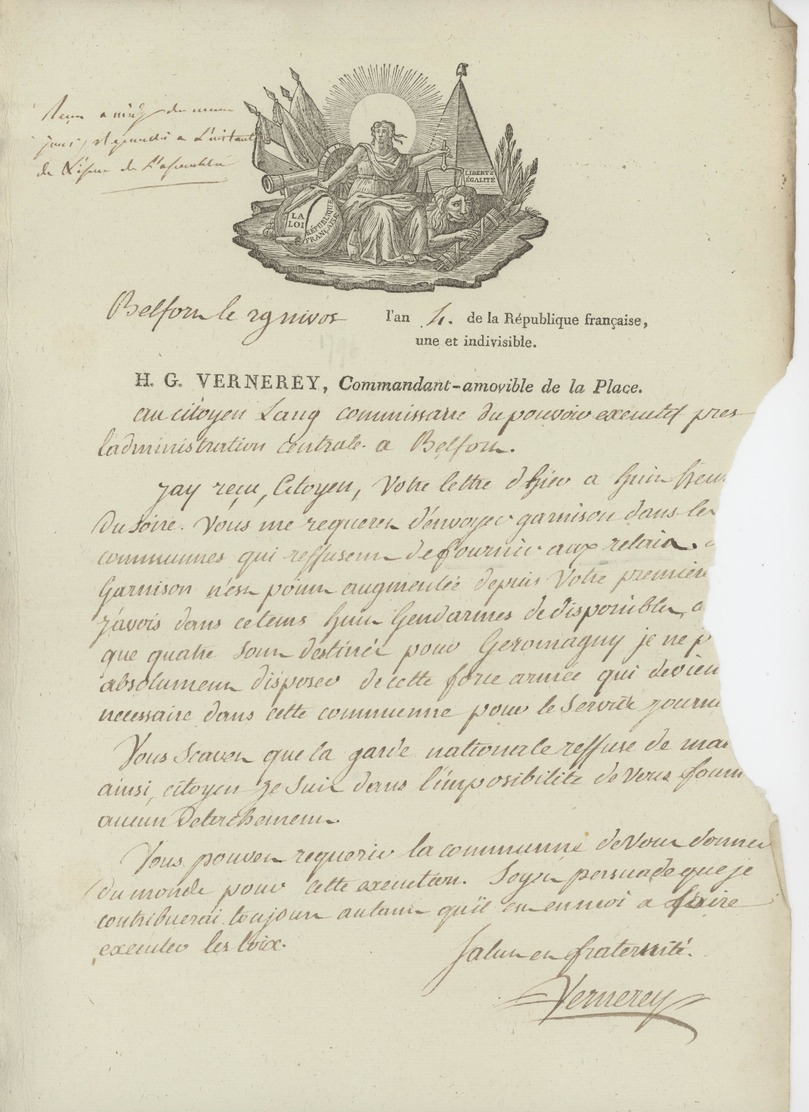 Reçu a midy du meme
jour, repondu a L'instant
de L'issue de L'assemblée
LIBERTÉ
ÉGALITÉ
LA
LOI
RÉPUBLIQUE
FRANÇAISE
Belfort le 29 nivos l'an 4. de la République française,
une et indivisible.
H. G. VERNEREY, Commandant-amovible de la Place.
au citoyen Lang commissaire du pouvoir executif pres
l'administration centrale a Belfort.
jay reçu, Citoyen, Votre lettre d'hier a huit heur
du soire. Vous me requeres d'envoyer garnison dans les
communnes qui reffusent de fournir aux relais.
Garnison n'est point augmentée depuis Votre premiere
j'avois dans ce tems huit Gendarmes de disponibles,
que quatre sont destinés pour Geromagny je ne p
absolument disposer de cette force armée qui devien
necessaire dans cette communne pour le service journ
Vous Scavés que la garde nationalle reffuse de mar
ainsi, citoyen je suis dans l'imposibilité de vous fourn
aucun detachement.
Vous pouvés requerir la communne de Vous donner
du monde pour cette execution. Soyés persuadé que je
contribuerai toujours autant qu'il est en moi a faire
executer les loix.
Salut et fraternité.
Vernerey